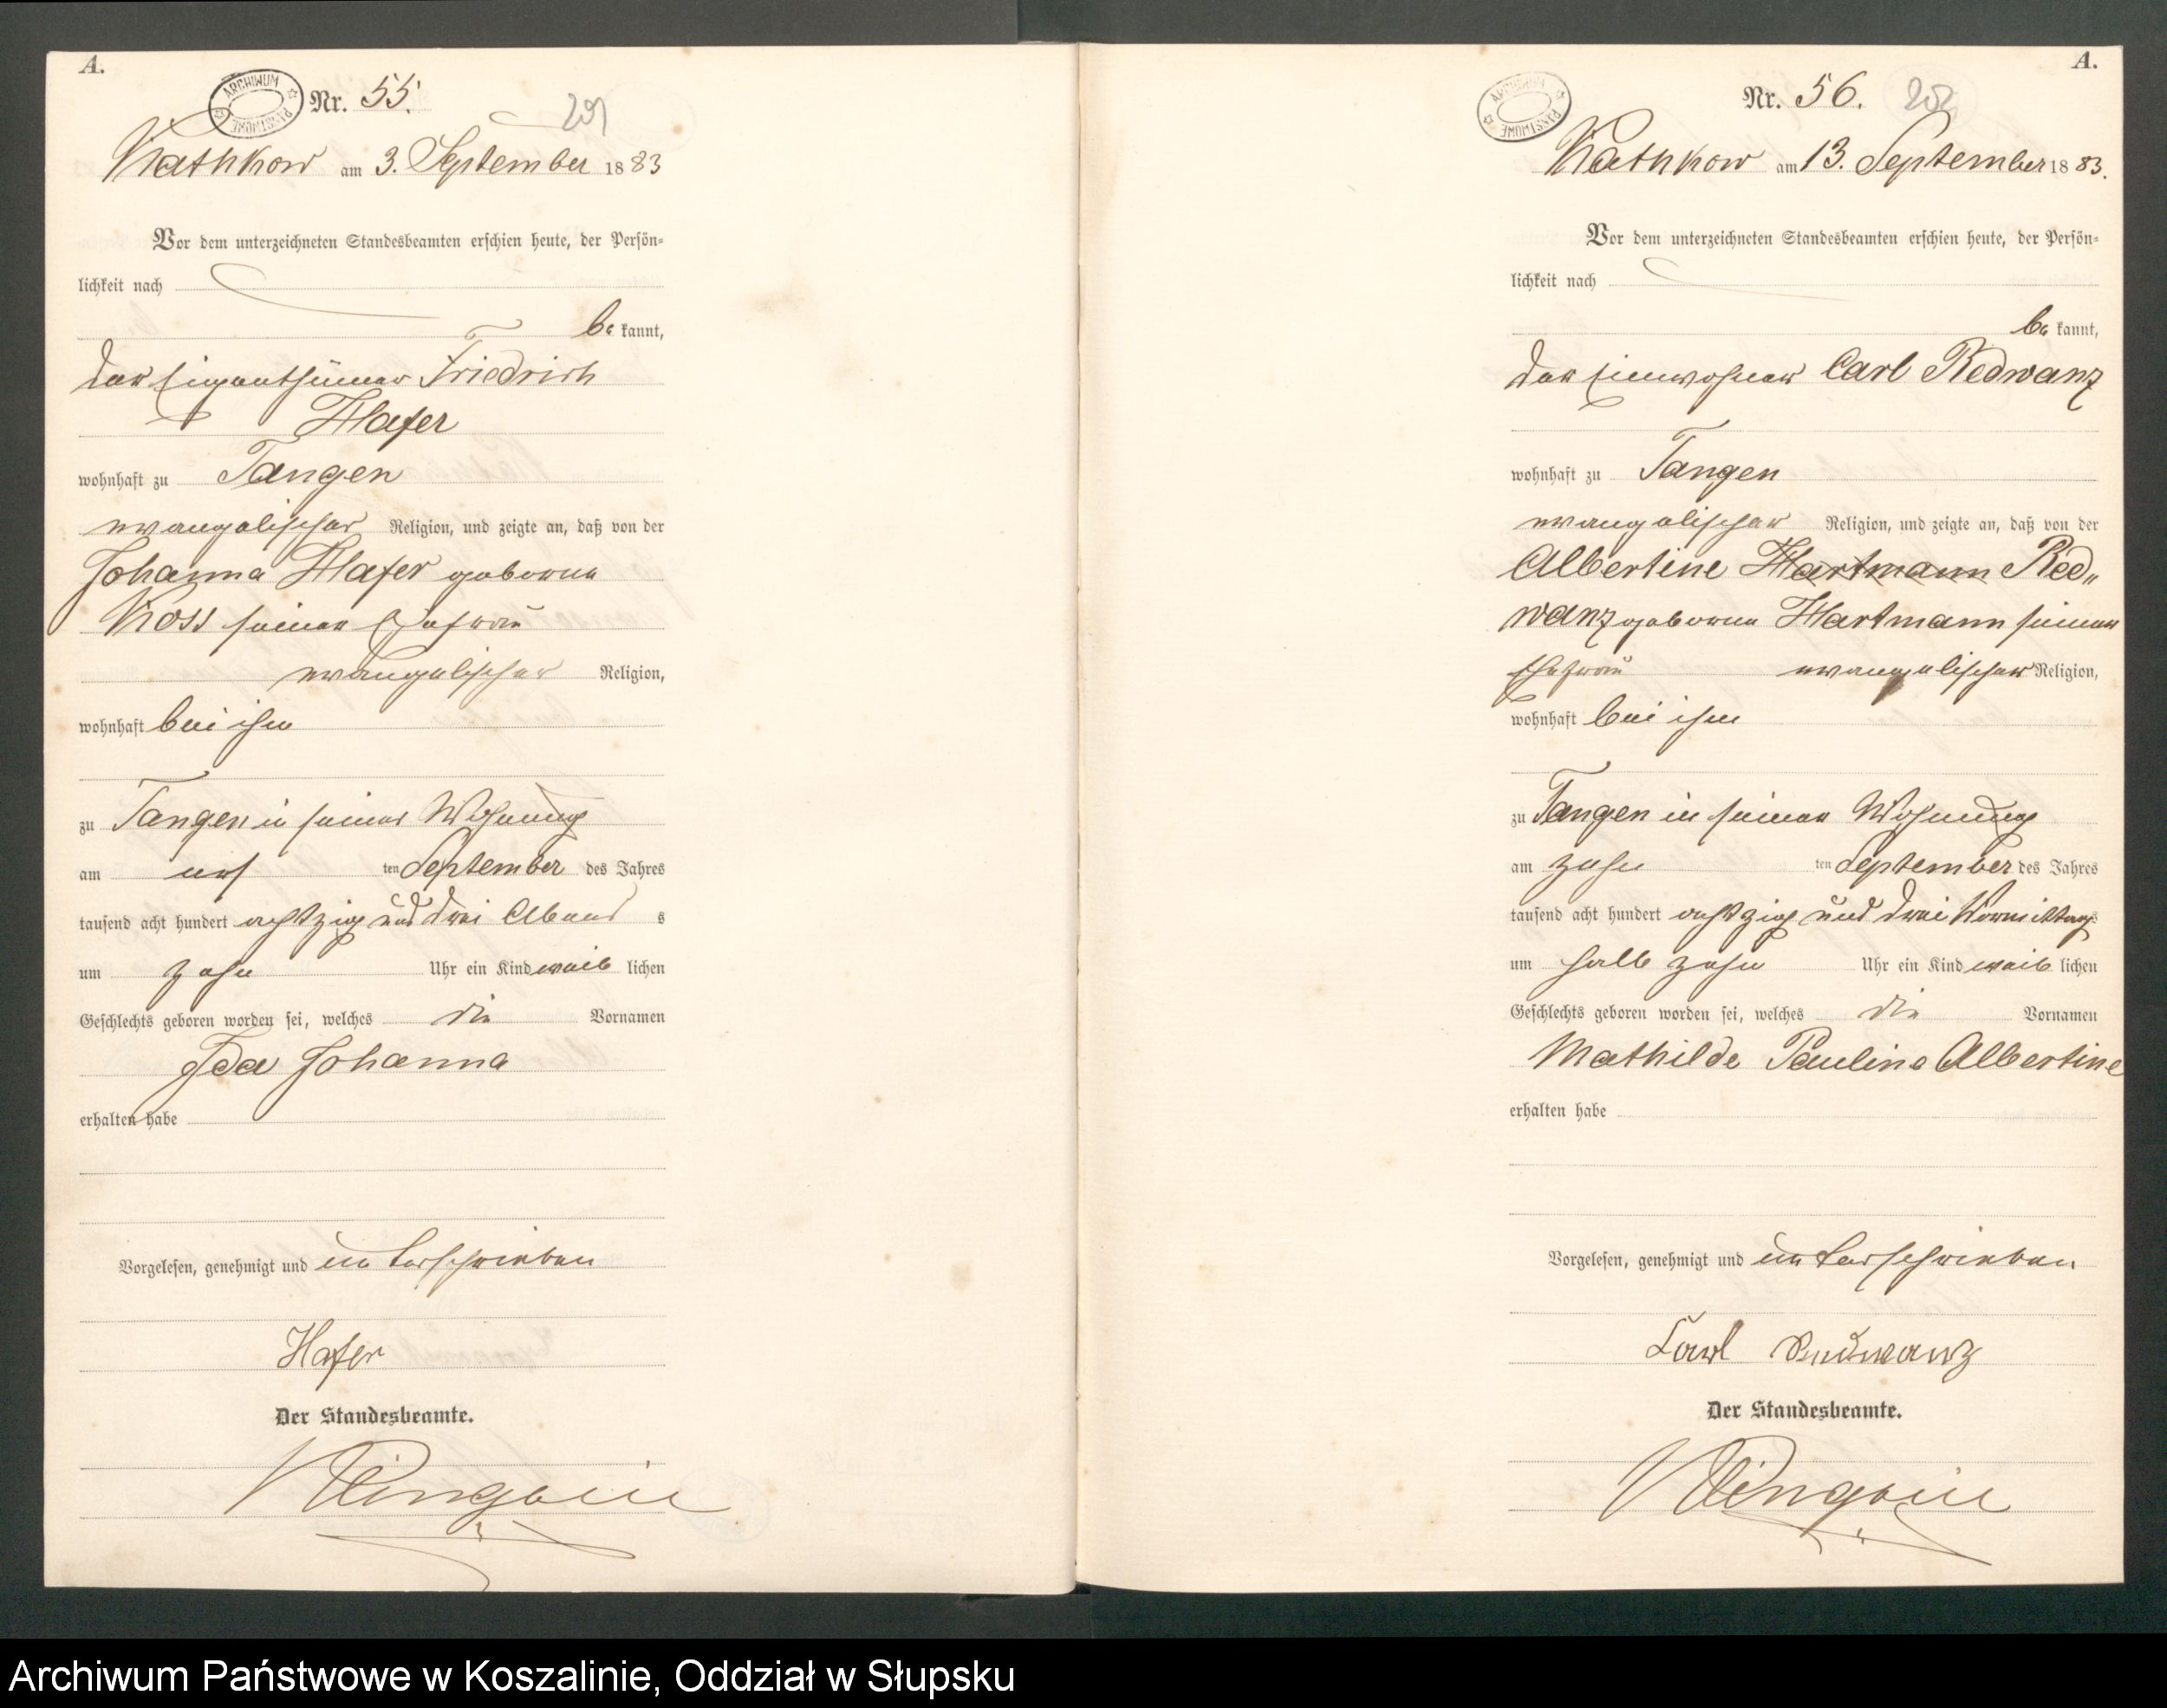 A.
ARCHIWUM PAŃSTWOWE
Nr. 55.
201
Kathkow am 3. September 1883
Vor dem unterzeichneten Standesbeamten erschien heute, der Persön=
lichkeit nach
be kannt,
der Eigenthümer Friedrich
Hafer
wohnhaft zu Tangen
evangelischer Religion, und zeigte an, daß von der
Johanna Hafer geborene
Koss seiner Ehefrau
evangelischer Religion,
wohnhaft bei ihm
zu Tangen in seiner Wohnung
am ersten September des Jahres
tausend acht hundert achtzig und drei Abends
um zehn Uhr ein Kind weiblichen
Geschlechts geboren worden sei, welches die Vornamen
Ida Johanna
erhalten habe
Vorgelesen, genehmigt und unterschrieben
Hafer
Der Standesbeamte.
A.
ARCHIWUM PAŃSTWOWE
Nr. 56. 202
Kathkow am 13. September 1883.
Vor dem unterzeichneten Standesbeamten erschien heute, der Persön=
lichkeit nach
be kannt,
der Einwohner Carl Redwanz
wohnhaft zu Tangen
evangelischer Religion, und zeigte an, daß von der
Albertine Hartmann Red„
wanz geborene Hartmann seiner
Ehefrau evangelischer Religion,
wohnhaft bei ihm
zu Tangen in seiner Wohnung
am zehnten September des Jahres
tausend acht hundert achtzig und drei Vormittags
um halb zehn Uhr ein Kind weiblichen
Geschlechts geboren worden sei, welches die Vornamen
Mathilde Pauline Albertine
erhalten habe
Vorgelesen, genehmigt und unterschrieben
Carl Redwanz
Der Standesbeamte.
Archiwum Państwowe w Koszalinie, Oddział w Słupsku